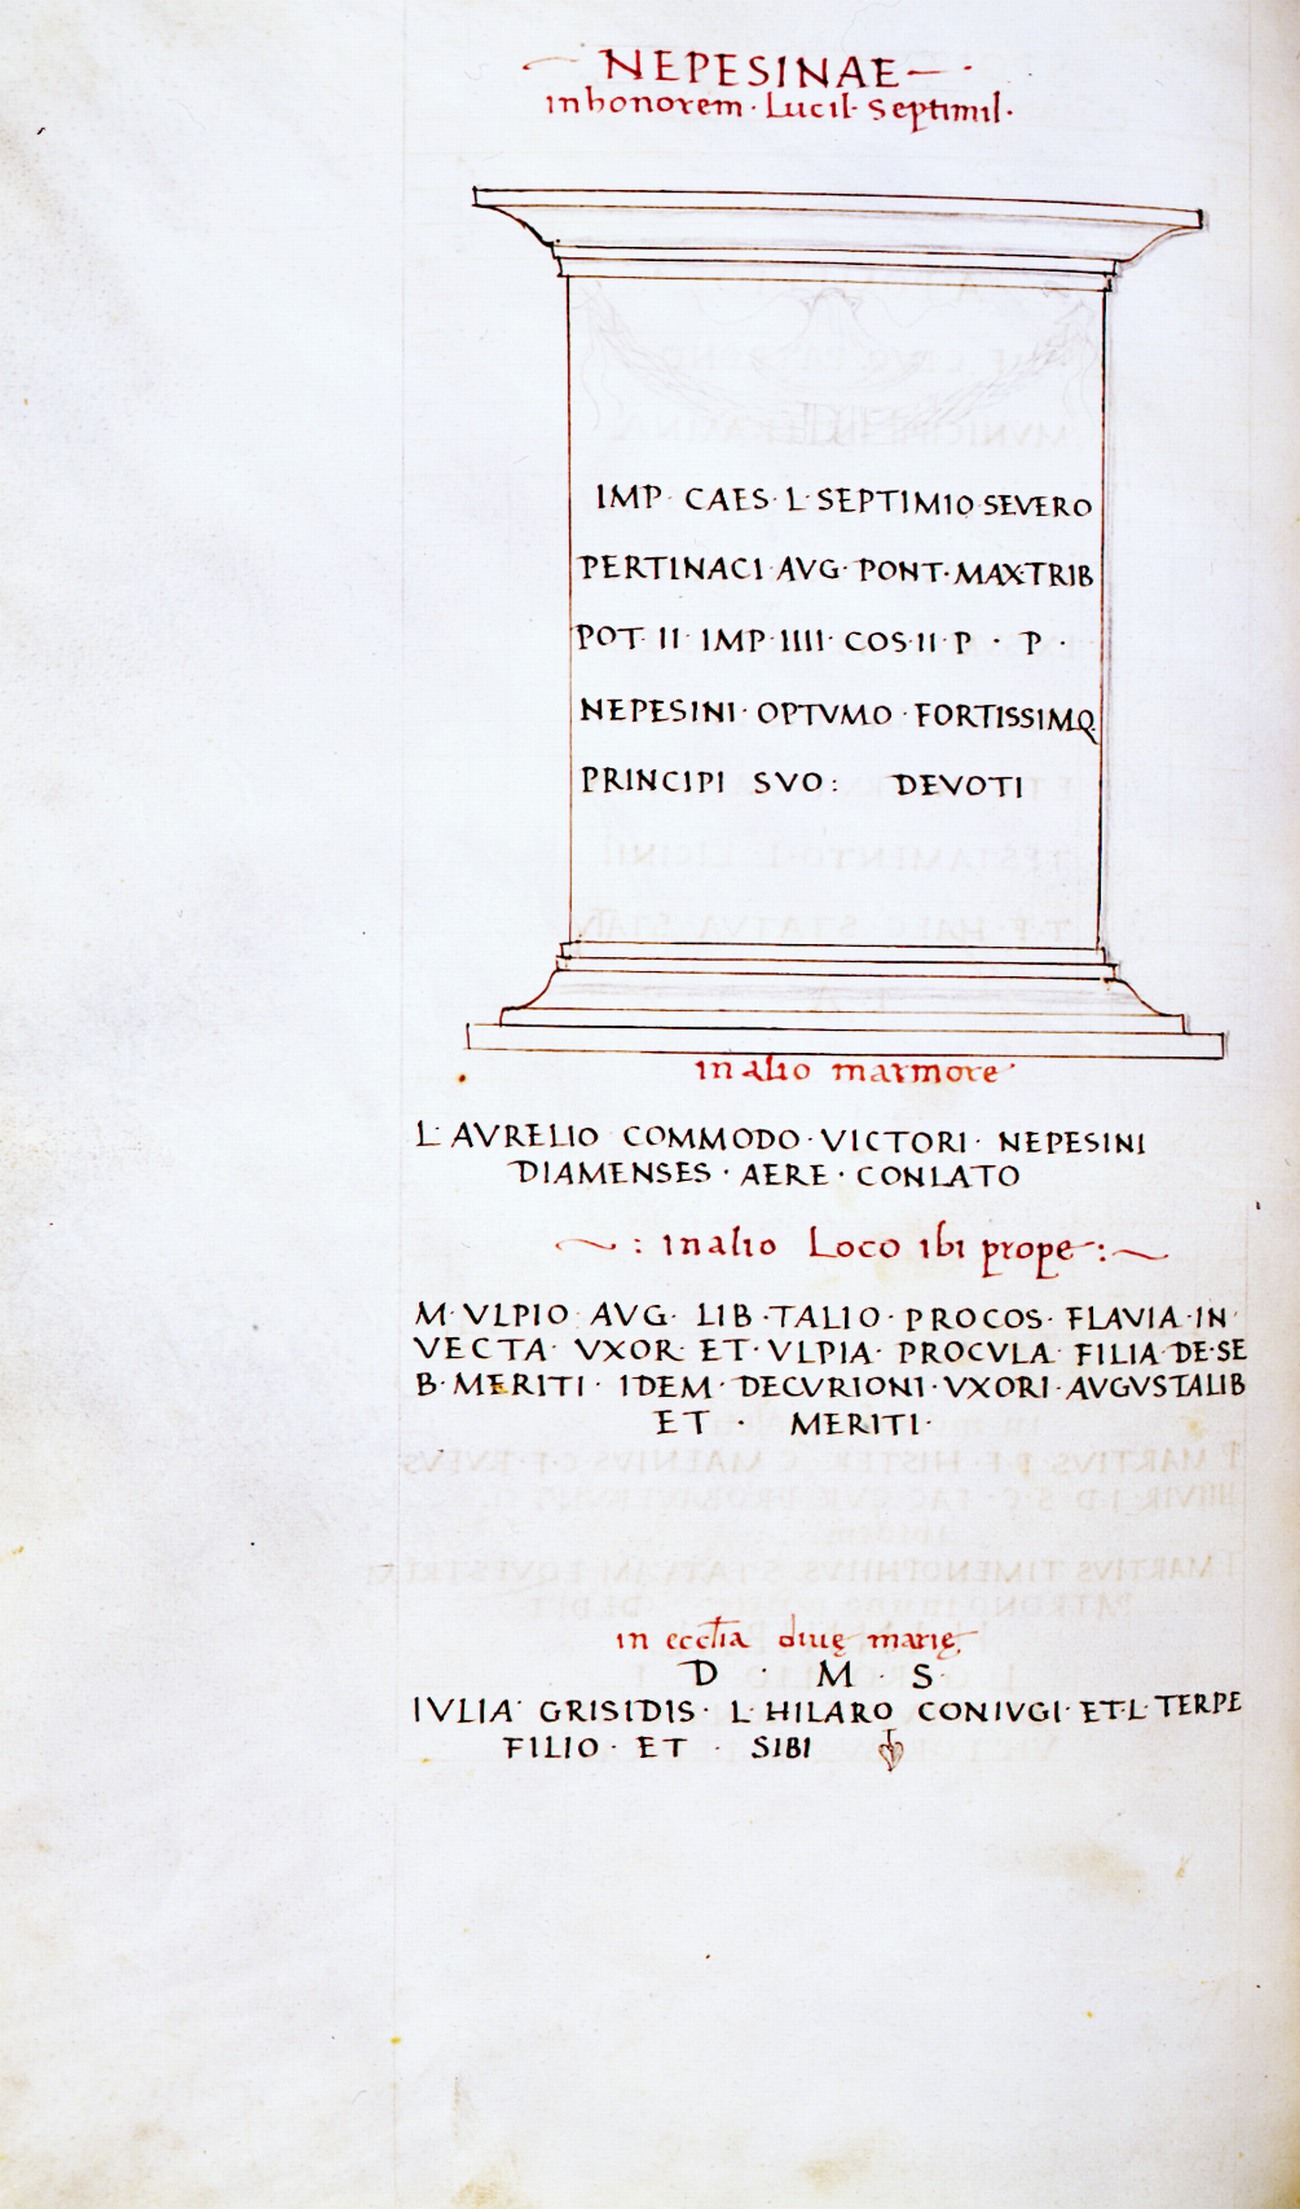 NEPESINAE
in honorem · Lucil· Septimil·
IMP· CAES· L· SEPTIMIO SEVERO
PERTINACI· AVG· PONT· MAX·TRIB
POT· II· IMP· IIII· COS·II· P · P ·
NEPESINI· OPTVMO · FORTISSIMO
PRINCIPI SVO: DEVOTI
in alio marmore
L· AVRELIO COMMODO· VICTORI· NEPESINI
DIAMENSES · AERE · CONLATO
: in alio Loco ibi prope :
M· VLPIO AVG· LIB · TALIO· PROCOS· FLAVIA·IN·
VECTA· VXOR· ET· VLPIA· PROCVLA· FILIA·DE·SE
B· MERITI · IDEM· DECVRIONI· VXORI· AVGVSTALIB
ET · MERITI·
in eccl̅ia diuę marię
D · M · S·
IVLIA· GRISIDIS· L· HILARO CONIVGI· ET·L· TERPE
FILIO· ET · SIBI